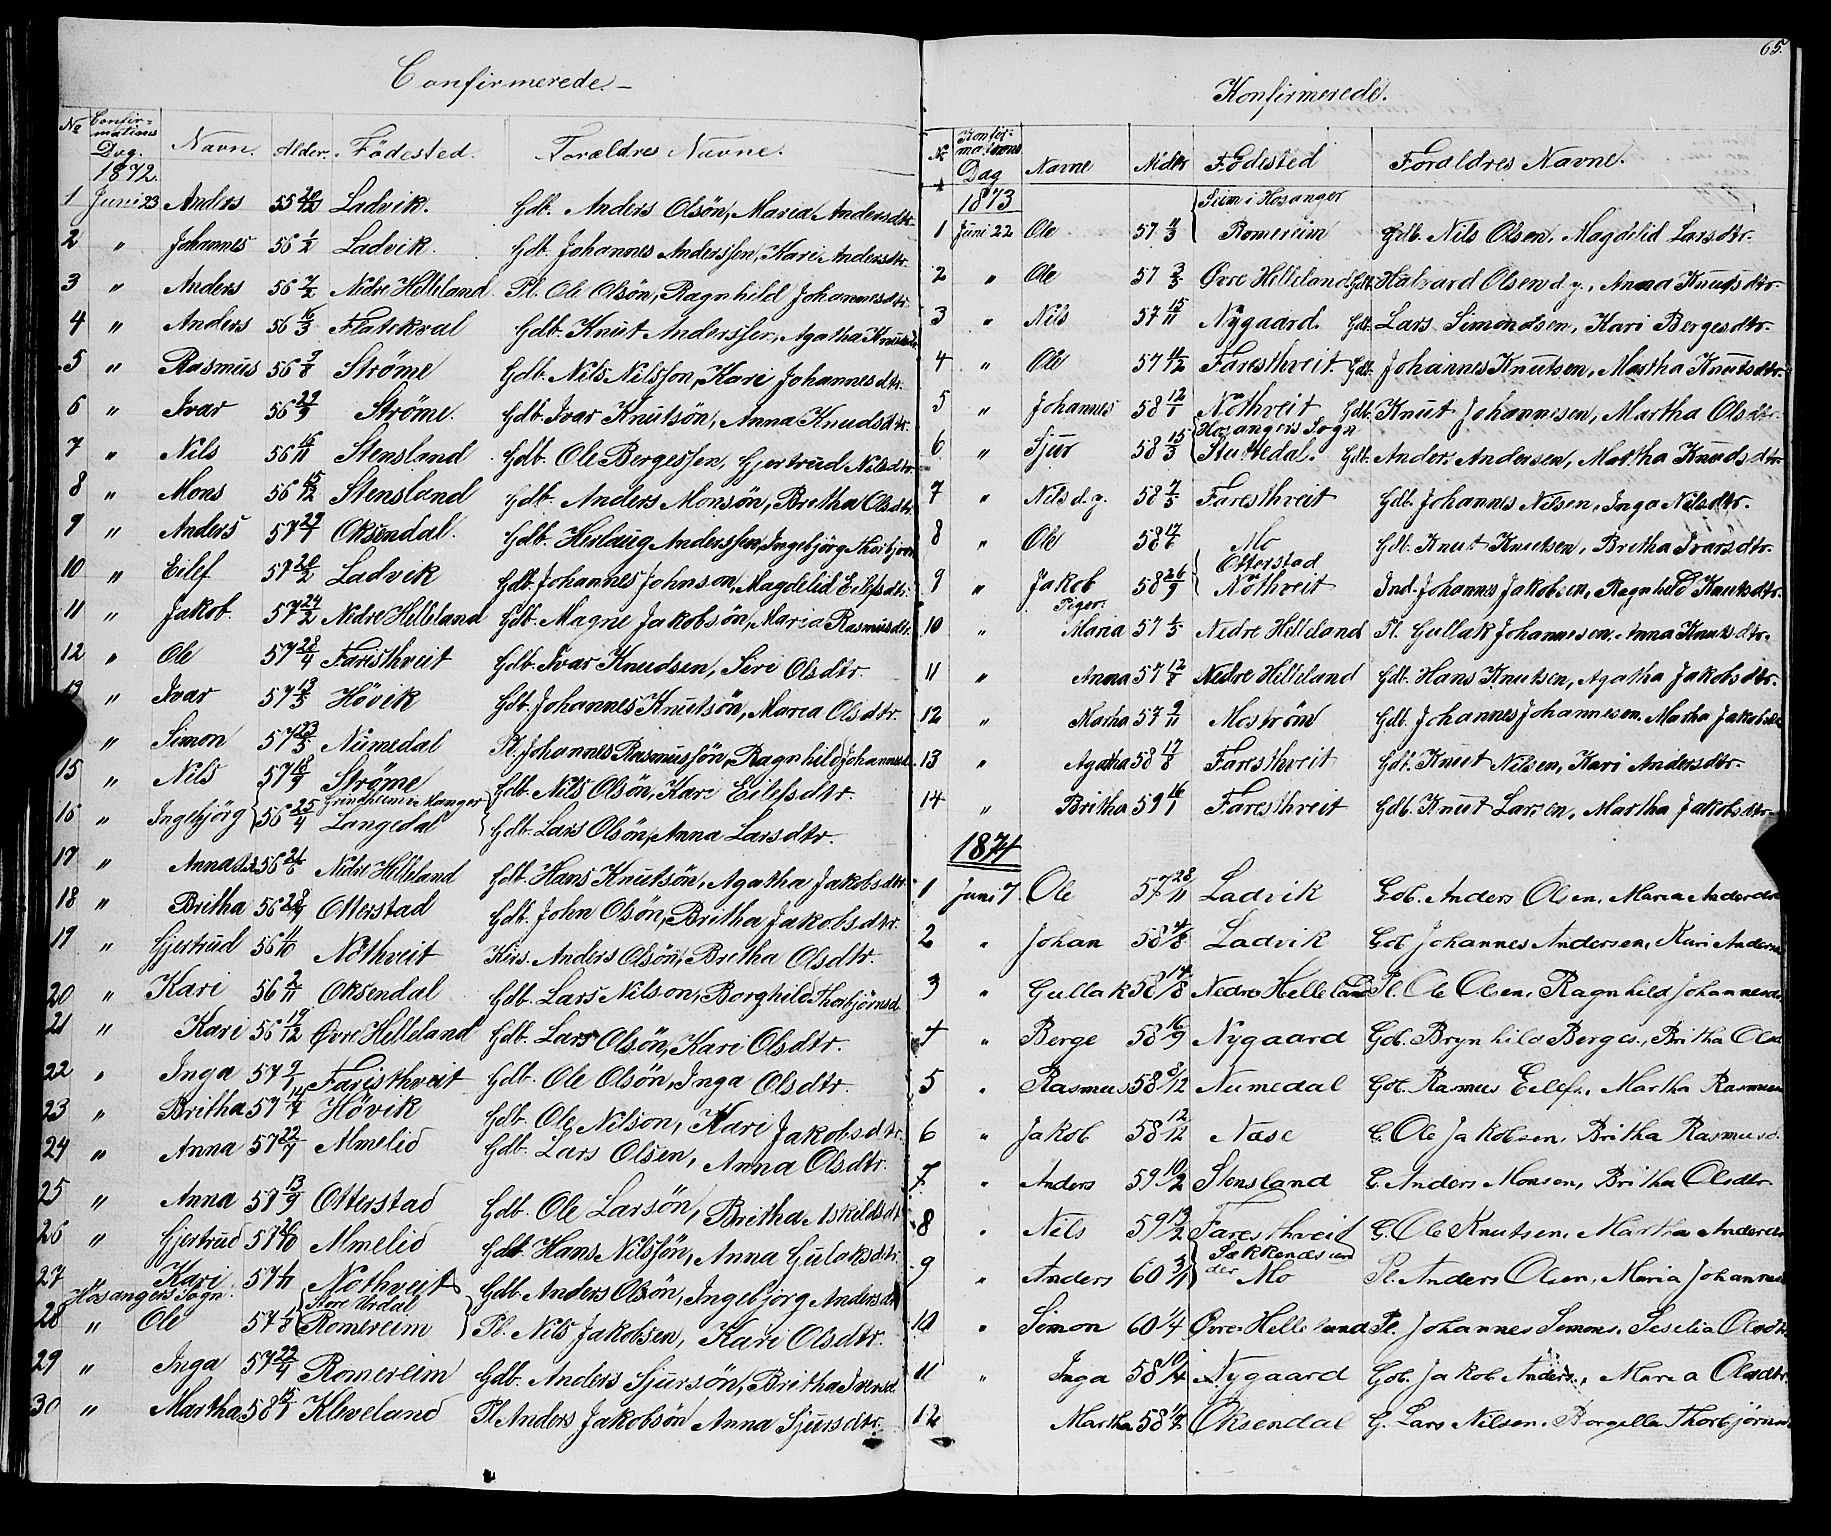 65.
Confirmerede.
No Confirmations Dag. Navn. Alder. Födested. Forældres Navne.
1872.
1 Juni 23 Anders 55 Ladvik. Gdb. Anders Olsön, Maria Andersdtr.
2 " Johannes 56 1/2 Ladvik. Gdb. Johannes Anderssen, Kari Andersdtr.
3 " Anders 56 7/2 Nedre Helleland. Pl. Ole Olsön, Ragnhild Johannesdtr.
4 " Anders 56 16/3 Flatekval Gdb. Knut Anderssen, Agatha
5 " Rasmus 56 9/8 Ströme Gdb. Nils Nilsson, Kari Johannesdtr.
6 " Ivar 56 29/9 Ströme. Gdb. Ivar Knutsön, Anna Knudsdtr.
7 " Nils 56 16/11 Stensland Gdb. Ole Bergessen, Gjertrud Nilsdtr.
8 " Mons 56 15/12 Stensland Gdb. Anders Monsön, Britha Olsdtr.
9 " Anders 57 29/1 Oksendal. Gdb. Herlaug Anderssen, Ingebjörg
10 " Eilef 57 20/2 Ladvik Gdb. Johannes Johnson, Magdelid Eilefsdtr.
11 " Jakob. 57 24/2 Nedre Helleland Gdb. Magne Jakobsön, Maria Rasmusdtr.
12 " Ole 57 28/4 Faristhveit Gdb. Ivar Knudsen, Seri Olsdtr.
13 " Ivar 57 13/5 Hövik Gdb. Johannes Knutsön, Maria Olsdtr.
" Simon 57 23/5 Numedal Pl. Johannes Rasmussön, Ragnhild
15 " Nils 57 18/9 Ströme Gdb. Nils Olsön, Kari Eilefsdtr.
16 " Ingebjörg 56 25/4 Grindheim i Manger Langedal Gdb. Lars Olsön, Anna Larsdtr.
17 " Anna 56 Nedre Helleland Gdb. Hans Knutsön, Agatha Jakobsdtr.
18 " Britha 56 28/9 Otterstad Gdb. John Olsön, Britha Jakobsdtr.
19 " Gjertrud 56 Nöthveit Anders Olsön, Britha Olsdtr.
20 " Kari 56 2/11 Oksendal Gdb. Lars Nilson, Borghild Thorbjörnsd.
21 " Kari 56 19/12 Øvre Helleland Gdb. Lars Olsön, Kari Olsdtr.
22 " Inga 57 9/1 Faristhveit Gdb. Ole Olsön, Inga Olsdtr.
23 " Britha 57 Hövik Gdb. Ole Nilson, Kari Jakobsdtr.
24 " Anna 57 22/7 Almelid Gdb. Lars Olsen, Anna Olsdtr.
25 " Anna 57 13/9 Otterstad Gdb. Ole Larsön, Britha Askildsdt.
26 " Gjertrud 57 Almelid Gdb. Hans Nilssön, Anna Gulaksdtr.
27 " Kari 57 Nöthveit Gdb. Anders Olsön, Ingebjörg Andersdt.
Hosangers Sogn.
28 " Ole 57 Store Urdal Romereim Pl. Nils Jakobsen, Kari Olsdtr.
29 " Inga 57 Romereim Gdb. Anders Sjursön, Britha Ivensd.
30 " Martha 58 Kleveland Pl. Anders Jakobsön Anna Sjursdtr.
Konfirmerede.
No Konfirmations Dag Navne Alder Födested Forældres Navne.
1873
1 Juni 22 Ole 57 Seim i Hosanger Romereim Gdb. Nils Olsen, Magdelid Larsdtr.
2 " Ole 57 Øvre Helleland Gdb. Halvard Olsen d.y., Anna Knutsdtr.
3 " Nils 57 15/11 Nygaard. Gdb. Lars Simondsen, Kari Bergesdtr.
4 " Ole 57 11/12 Faresthveit Gdb. Johannes Knutsen, Martha Knutsdtr.
5 " Johannes 58 12/1 Nöthveit Gdb. Knut Johannesen, Martha Olsdtr.
6 " Sjur 58 15/3 Hosangers Sogn Stuttedal. Gdb. Anders Andersen, Martha Knudsdtr.
7 " Nils d.y. 58 7/5 Faresthveit Gdb. Johannes Nilsen, Inga Nilsdtr.
8 " Ole 58 17/6 Mo Gdb. Knut Knutsen, Britha Ivarsdtr.
9 " Jakob 58 26/9 Otterstad Nöthveit Ind. Johannes Jakobsen, Ragnhild Knutsdtr.
Piger:
10 " Maria 57 Nedre Helleland Pl. Gullak Johannesen, Anna Knutsdtr.
11 " Anna 57 12/8 Nedre Helleland Gdb. Hans Knutsen, Agatha Jakobsdtr.
12 " Martha 57 9/11 Moström Gdb. Johannes Johannesen, Martha
13 " Agatha 58 17/8 Faresthveit Gdb. Knut Nilsen, Kari Andersdtr.
14 " Britha 59 16/1 Faresthveit Gdb. Knut Larsen, Martha Jakobsdtr.
1874
1 Juni 7 Ole 57 28/11 Ladvik Gdb. Anders Olsen, Maria
2 " Johan 58 4/8 Ladvik Gdb Johannes Andersen, Kari
3 " Gullak 58 14/8 Nedre Helleland Pl. Ole Olsen, Ragnhild
4 " Berge 58 16/9 Nygaard Gdb. Brynhild Berges., Britha
5 " Rasmus 58 Numedal Gdb. Rasmus Eilefs., Martha
6 " Jakob 58 12/12 Næse G. Ole Jakobsen, Britha Rasmusd.
7 " Anders 59 10/2 Stensland G. Anders Monsen, Britha Olsdtr.
8 " Nils 59 Faresthveit G. Ole Knutsen, Martha
9 " Anders 60 3/1 Sækkenæs under Mo Pl. Anders Olsen, Maria
10 " Simon 60 1/4 Øvre Helleland Pl. Johannes Simons., Seselia
11 " Inga 58 10/4 Nygaard Gdb. Jakob Anders., Maria Olsdtr.
12 Martha 58 Oksendal G. Lars Nilsen,